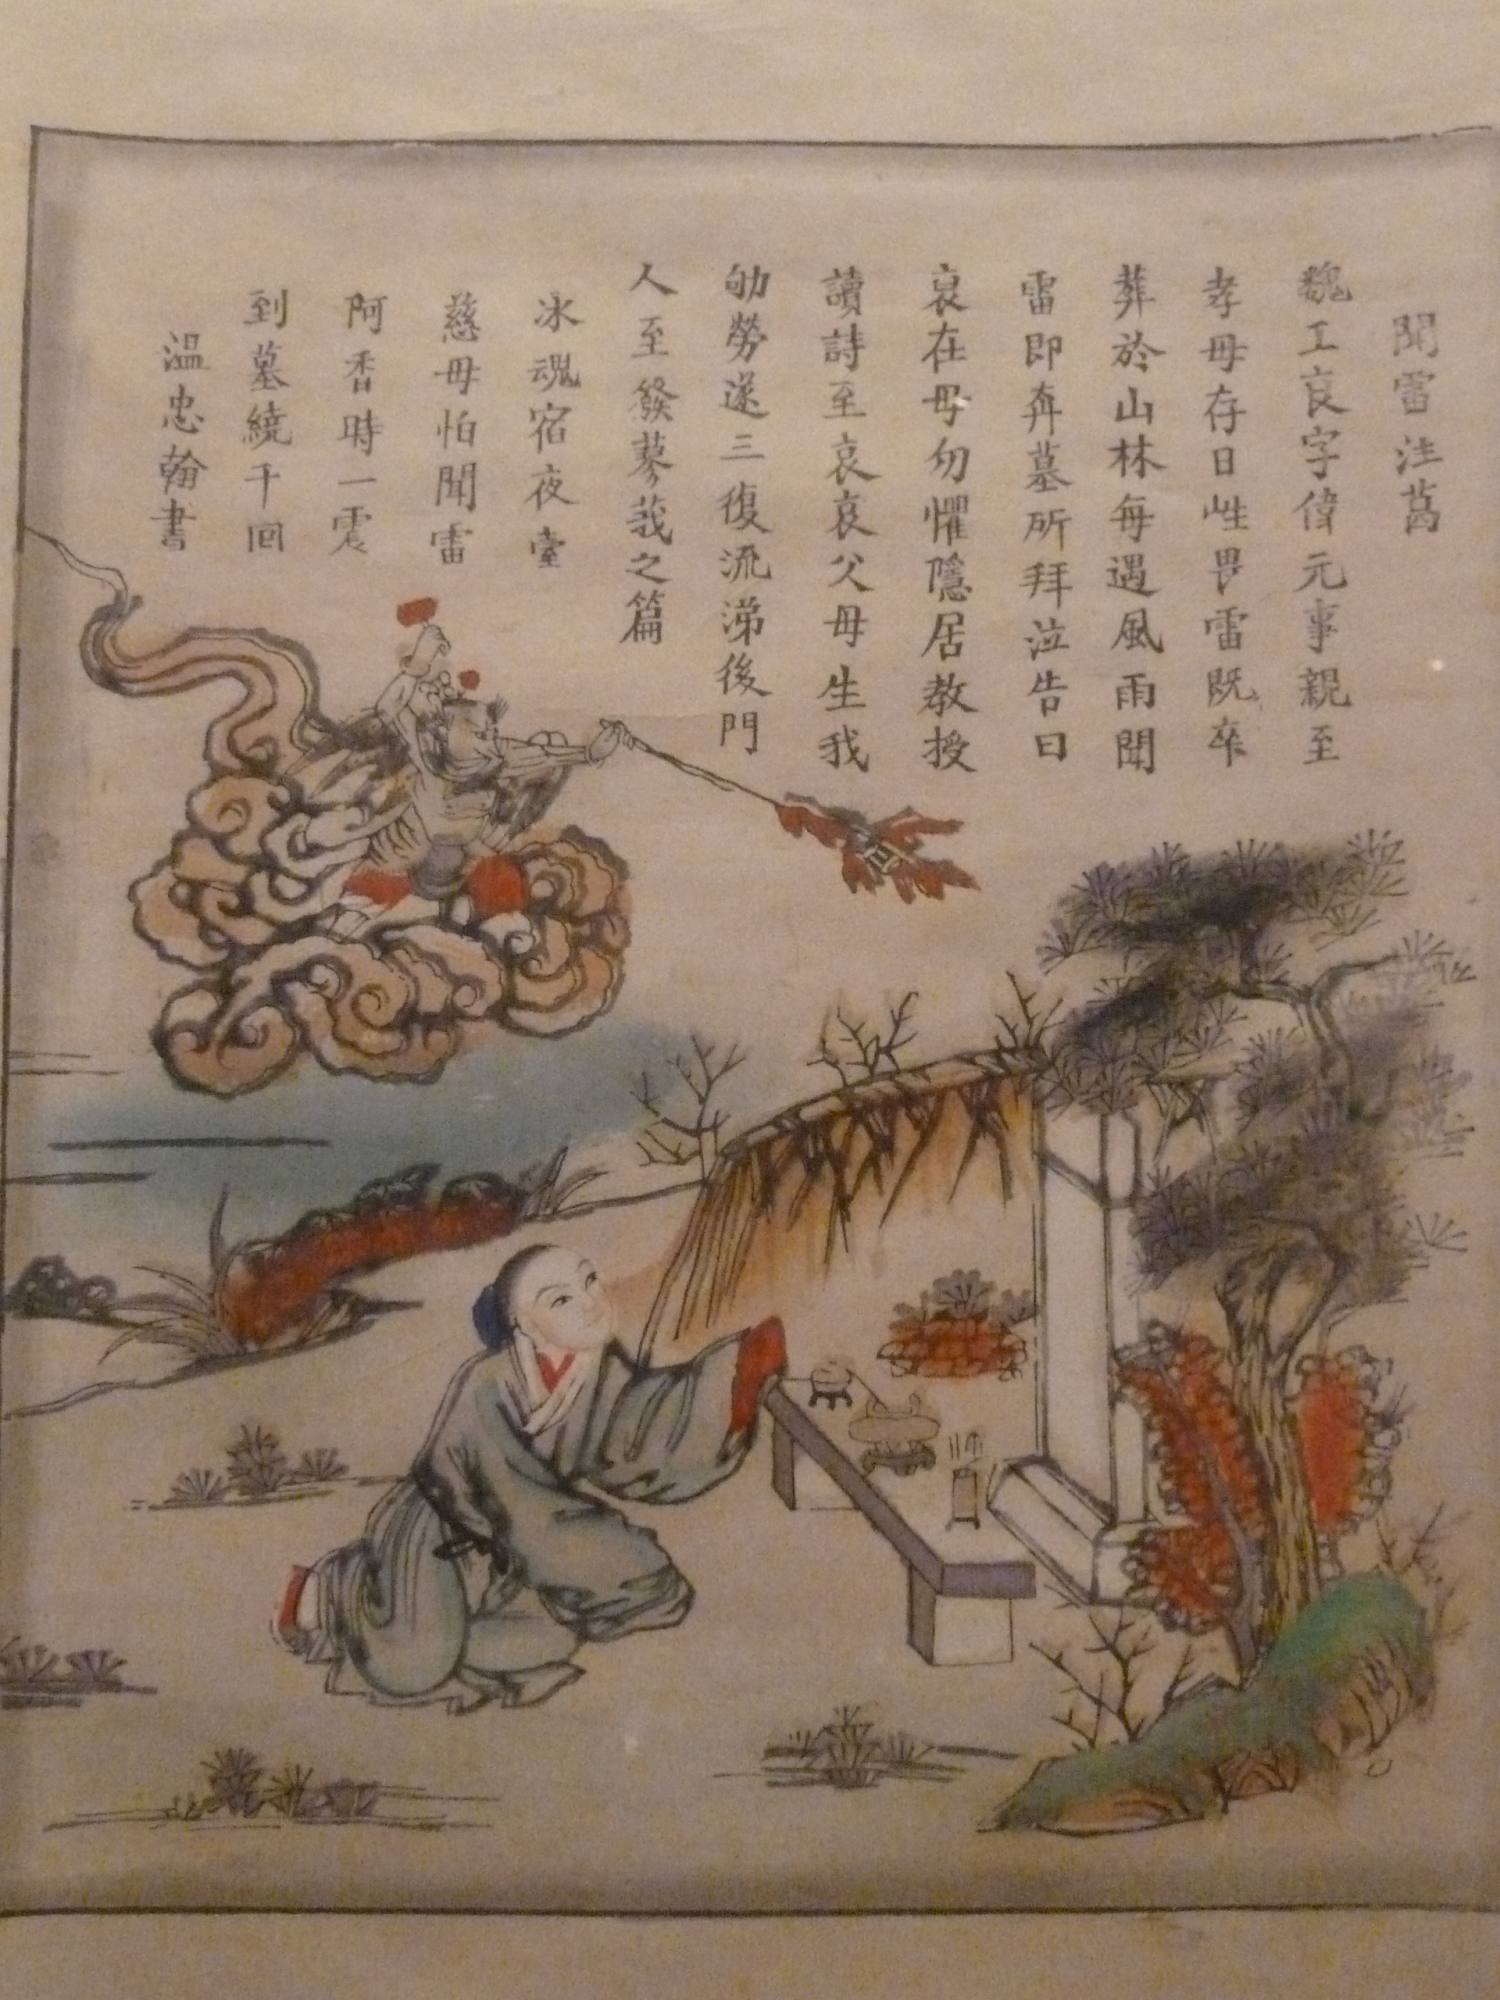 聞雷泣墓
魏工哀字偉元事親至
孝母存日性畏雷既卒
葬於山林每遇風雨聞
雷即奔墓所拜泣告曰
哀在母勿懼隱居教授
讀詩至哀哀父母生我
劬勞遂三復流涕後門
人至發蓼莪之篇
冰魂宿夜臺
慈母怕聞雷
阿香時一震
到墓繞千回
溫忠翰書